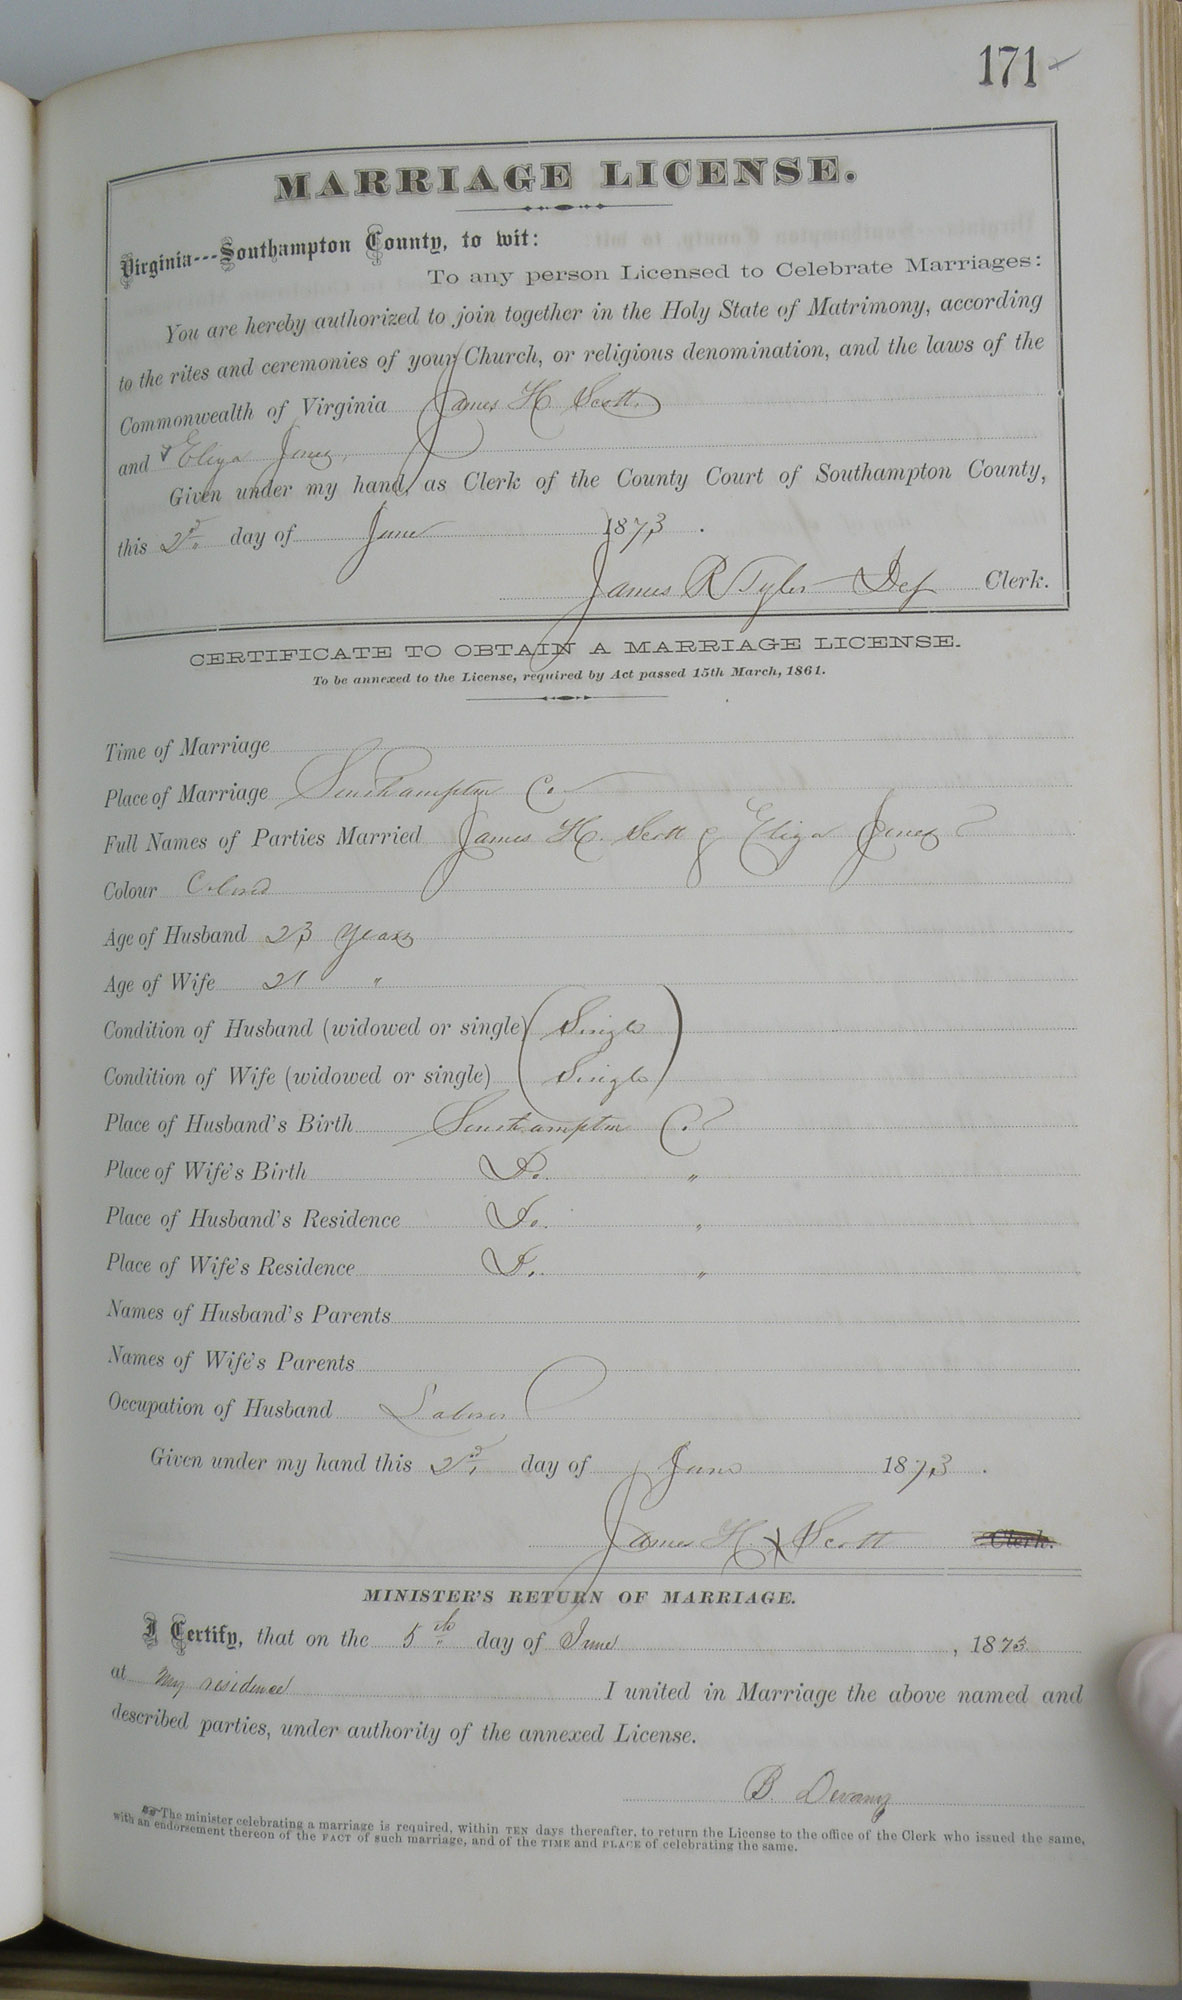 171
MARRIAGE LICENSE.
Virginia---Southampton County, to wit:
To any person Licensed to Celebrate Marriages:
You are hereby authorized to join together in the Holy State of Matrimony, according
to the rites and ceremonies of your Church, or religious denomination, and the laws of the
Commonwealth of Virginia James H Scott
and Eliza Jones,
Given under my hand, as Clerk of the County Court of Southampton County,
this 2d. day of June 1873.
James R Tyler Dep Clerk.
CERTIFICATE TO OBTAIN A MARRIAGE LICENSE.
To be annexed to the License, required by Act passed 15th March, 1861.
Time of Marriage
Place of Marriage Southampton Co.
Full Names of Parties Married James H. Scott & Eliza Jones
Colour Colored
Age of Husband 23 Years
Age of Wife 21 "
Condition of Husband (widowed or single) Single
Condition of Wife (widowed or single) Single
Place of Husband's Birth Southampton Co.
Place of Wife's Birth Do. "
Place of Husband's Residence Do. "
Place of Wife's Residence Do. "
Names of Husband's Parents
Names of Wife's Parents
Occupation of Husband Laborer
Given under my hand this 2d. day of June 1873.
James H. X Scott Clerk.
MINISTER'S RETURN OF MARRIAGE.
I Certify, that on the 5th day of June, 1873
at my residence I united in Marriage the above named and
described parties, under authority of the annexed License.
B. Devany
The minister celebrating a marriage is required, within TEN days thereafter, to return the License to the office of the Clerk who issued the same,
with an endorsement thereon of the FACT of such marriage, and of the TIME and PLACE of celebrating the same.